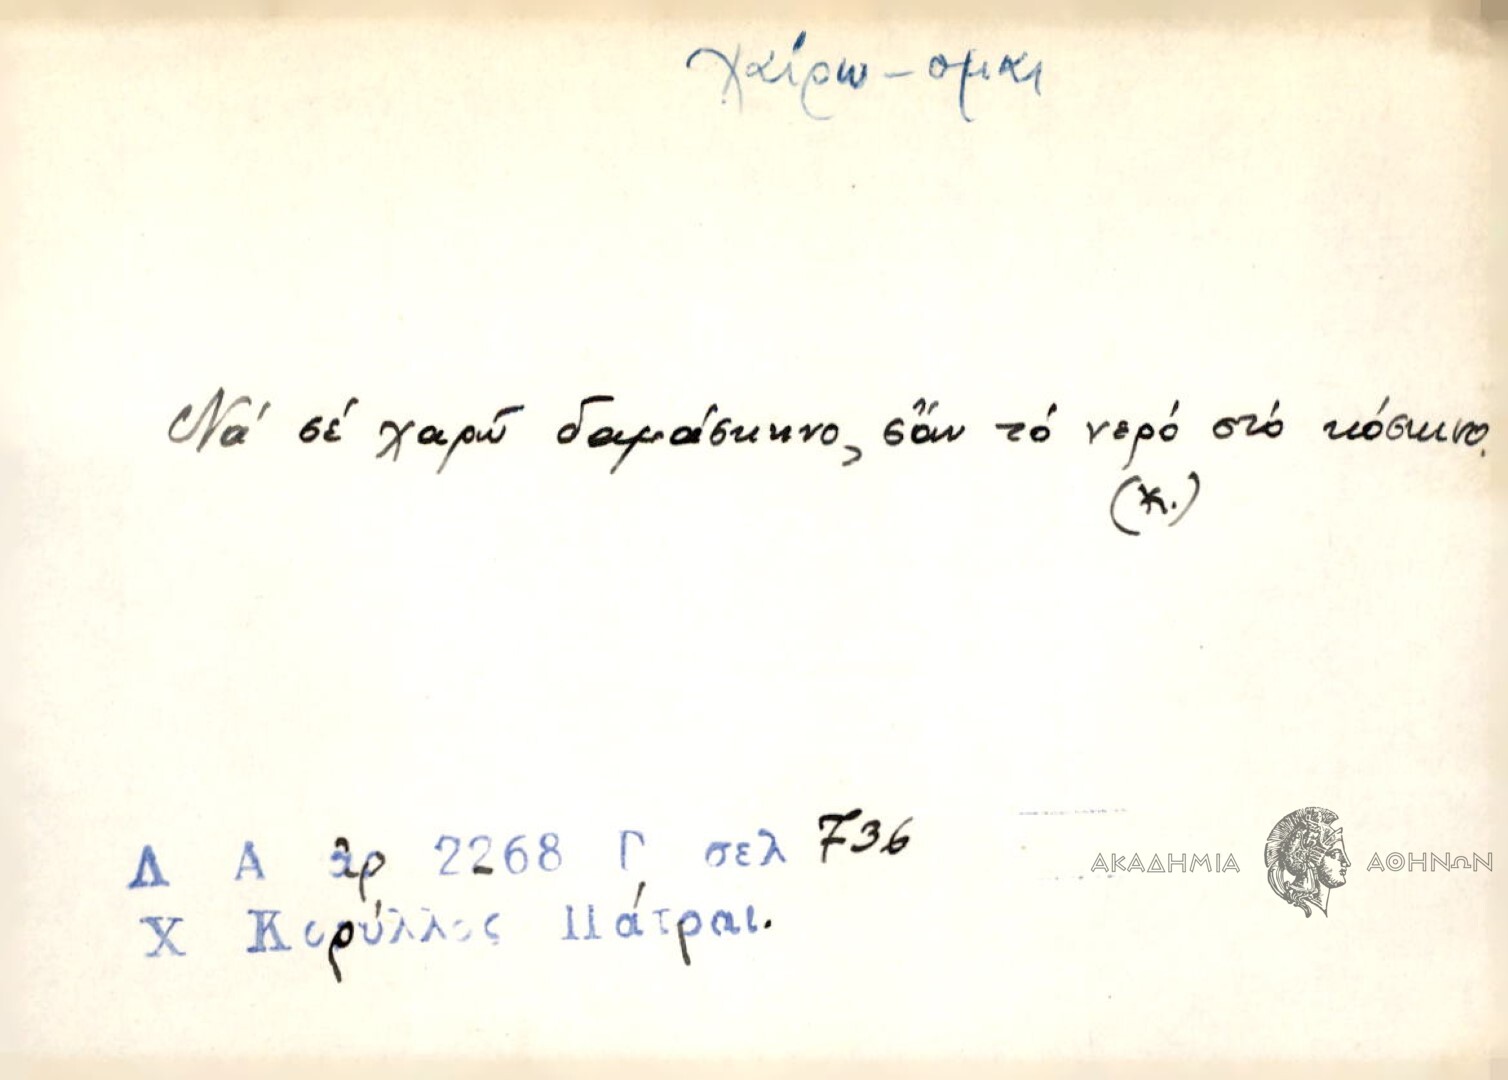 χαίρω - ομαι
Νά σέ χαρῶ δαμάσκηνο, σἄν τό νερό στό κόσκινο.
(κ.)
Λ Α ἀρ 2268 Γ σελ 736
Χ Κορύλλος Πάτραι.
ΑΚΑΔΗΜΙΑ ΑΘΗΝΩΝ